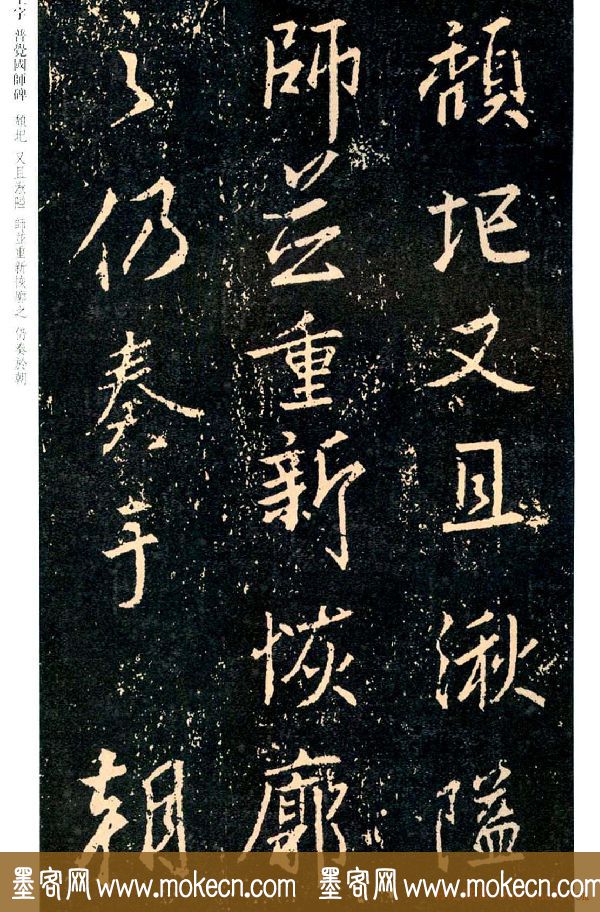 頹圮又且湫隘
師並重新恢廓
之仍奏于朝
字 普覺國師碑 頹圮 又且湫隘 師並重新恢廓之 仍奏於朝
墨客网 www.mokecn.com 墨客网 www.mokecn.com